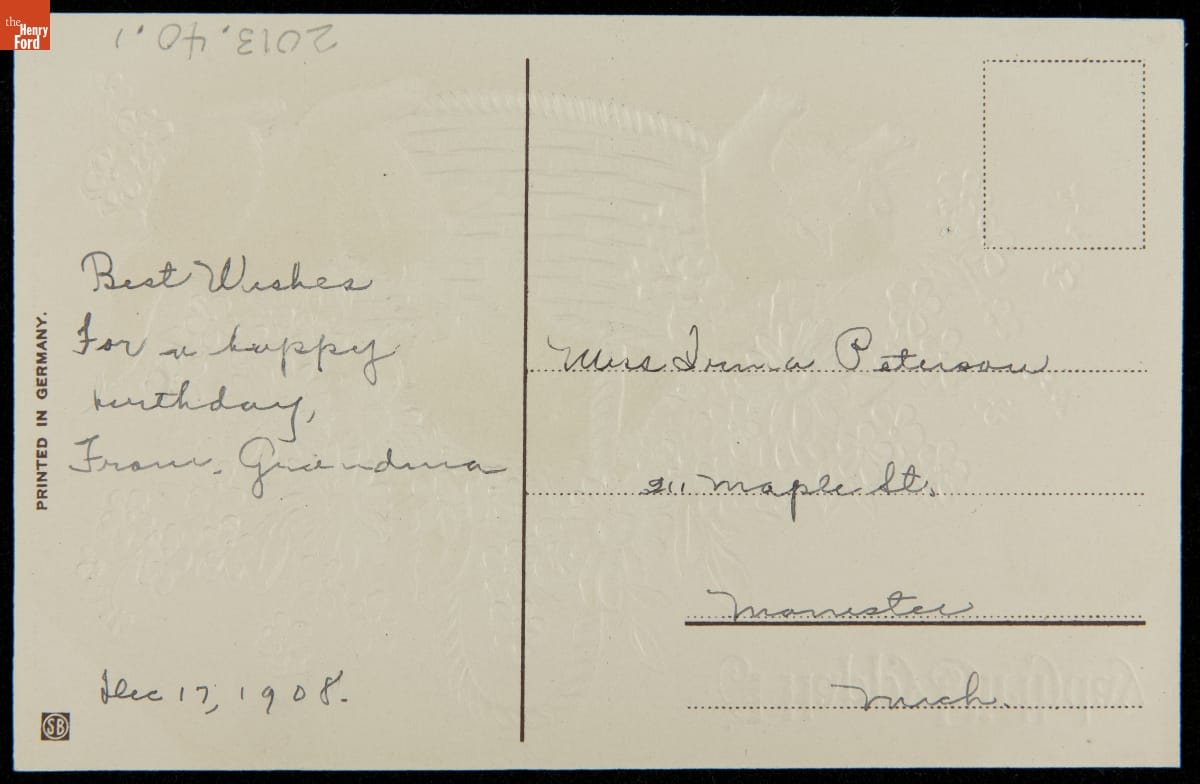 the
Henry
Ford
2013.40.1
Best Wishes
For a happy
birthday,
From, Grandma
Dec 17, 1908.
PRINTED IN GERMANY.
SB
Miss Irma Peterson
211 Maple St.
Manistee
Mich.